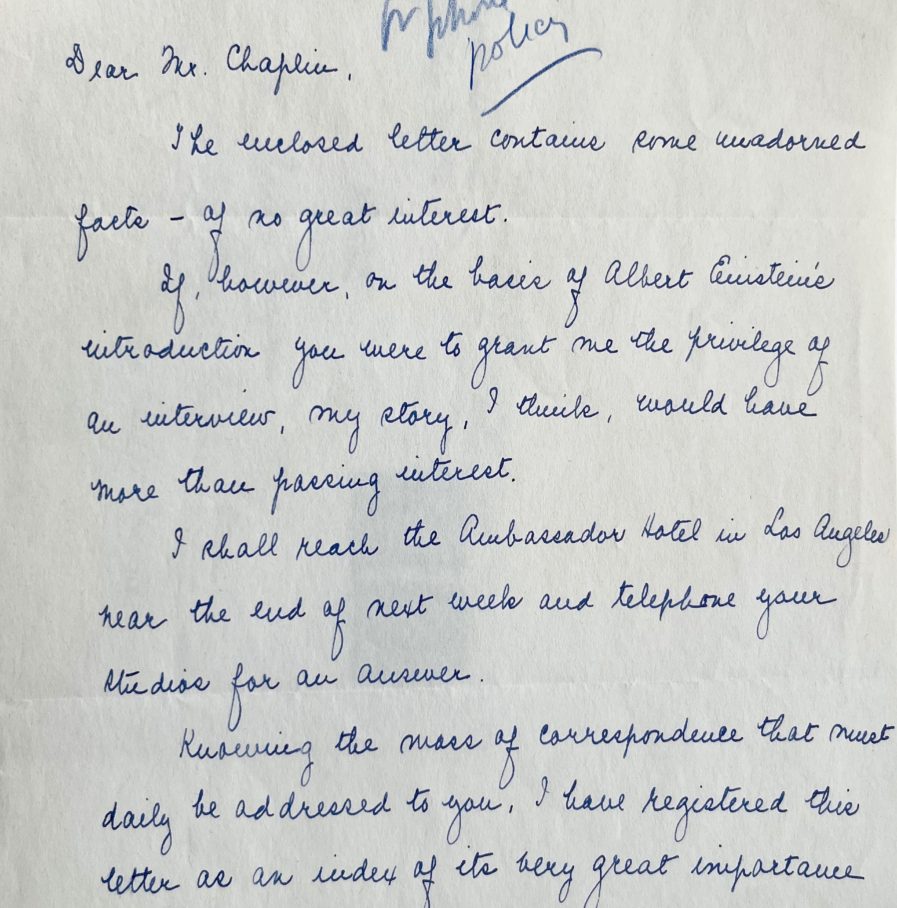 policy
Dear Mr. Chaplin,
The enclosed letter contains some unadorned
facts – of no great interest.
If, however, on the basis of Albert Einstein's
introduction you were to grant me the privilege of
an interview, my story, I think, would have
more than passing interest.
I shall reach the Ambassador Hotel in Los Angeles
near the end of next week and telephone your
studios for an answer.
Knowing the mass of correspondence that must
daily be addressed to you, I have registered this
letter as an index of its very great importance